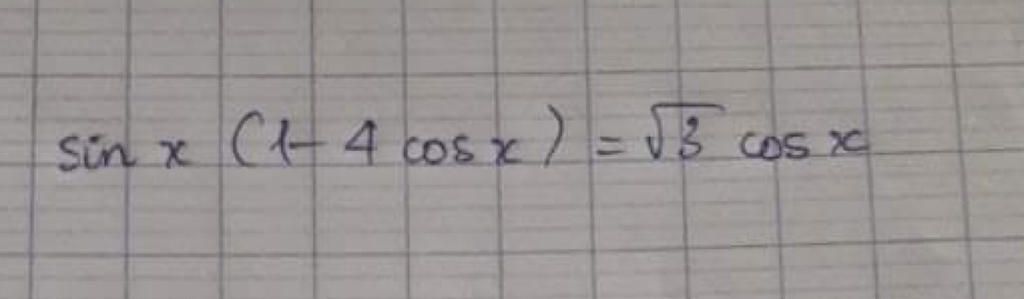 sin x (1 - 4 cos x) = √3 cos x